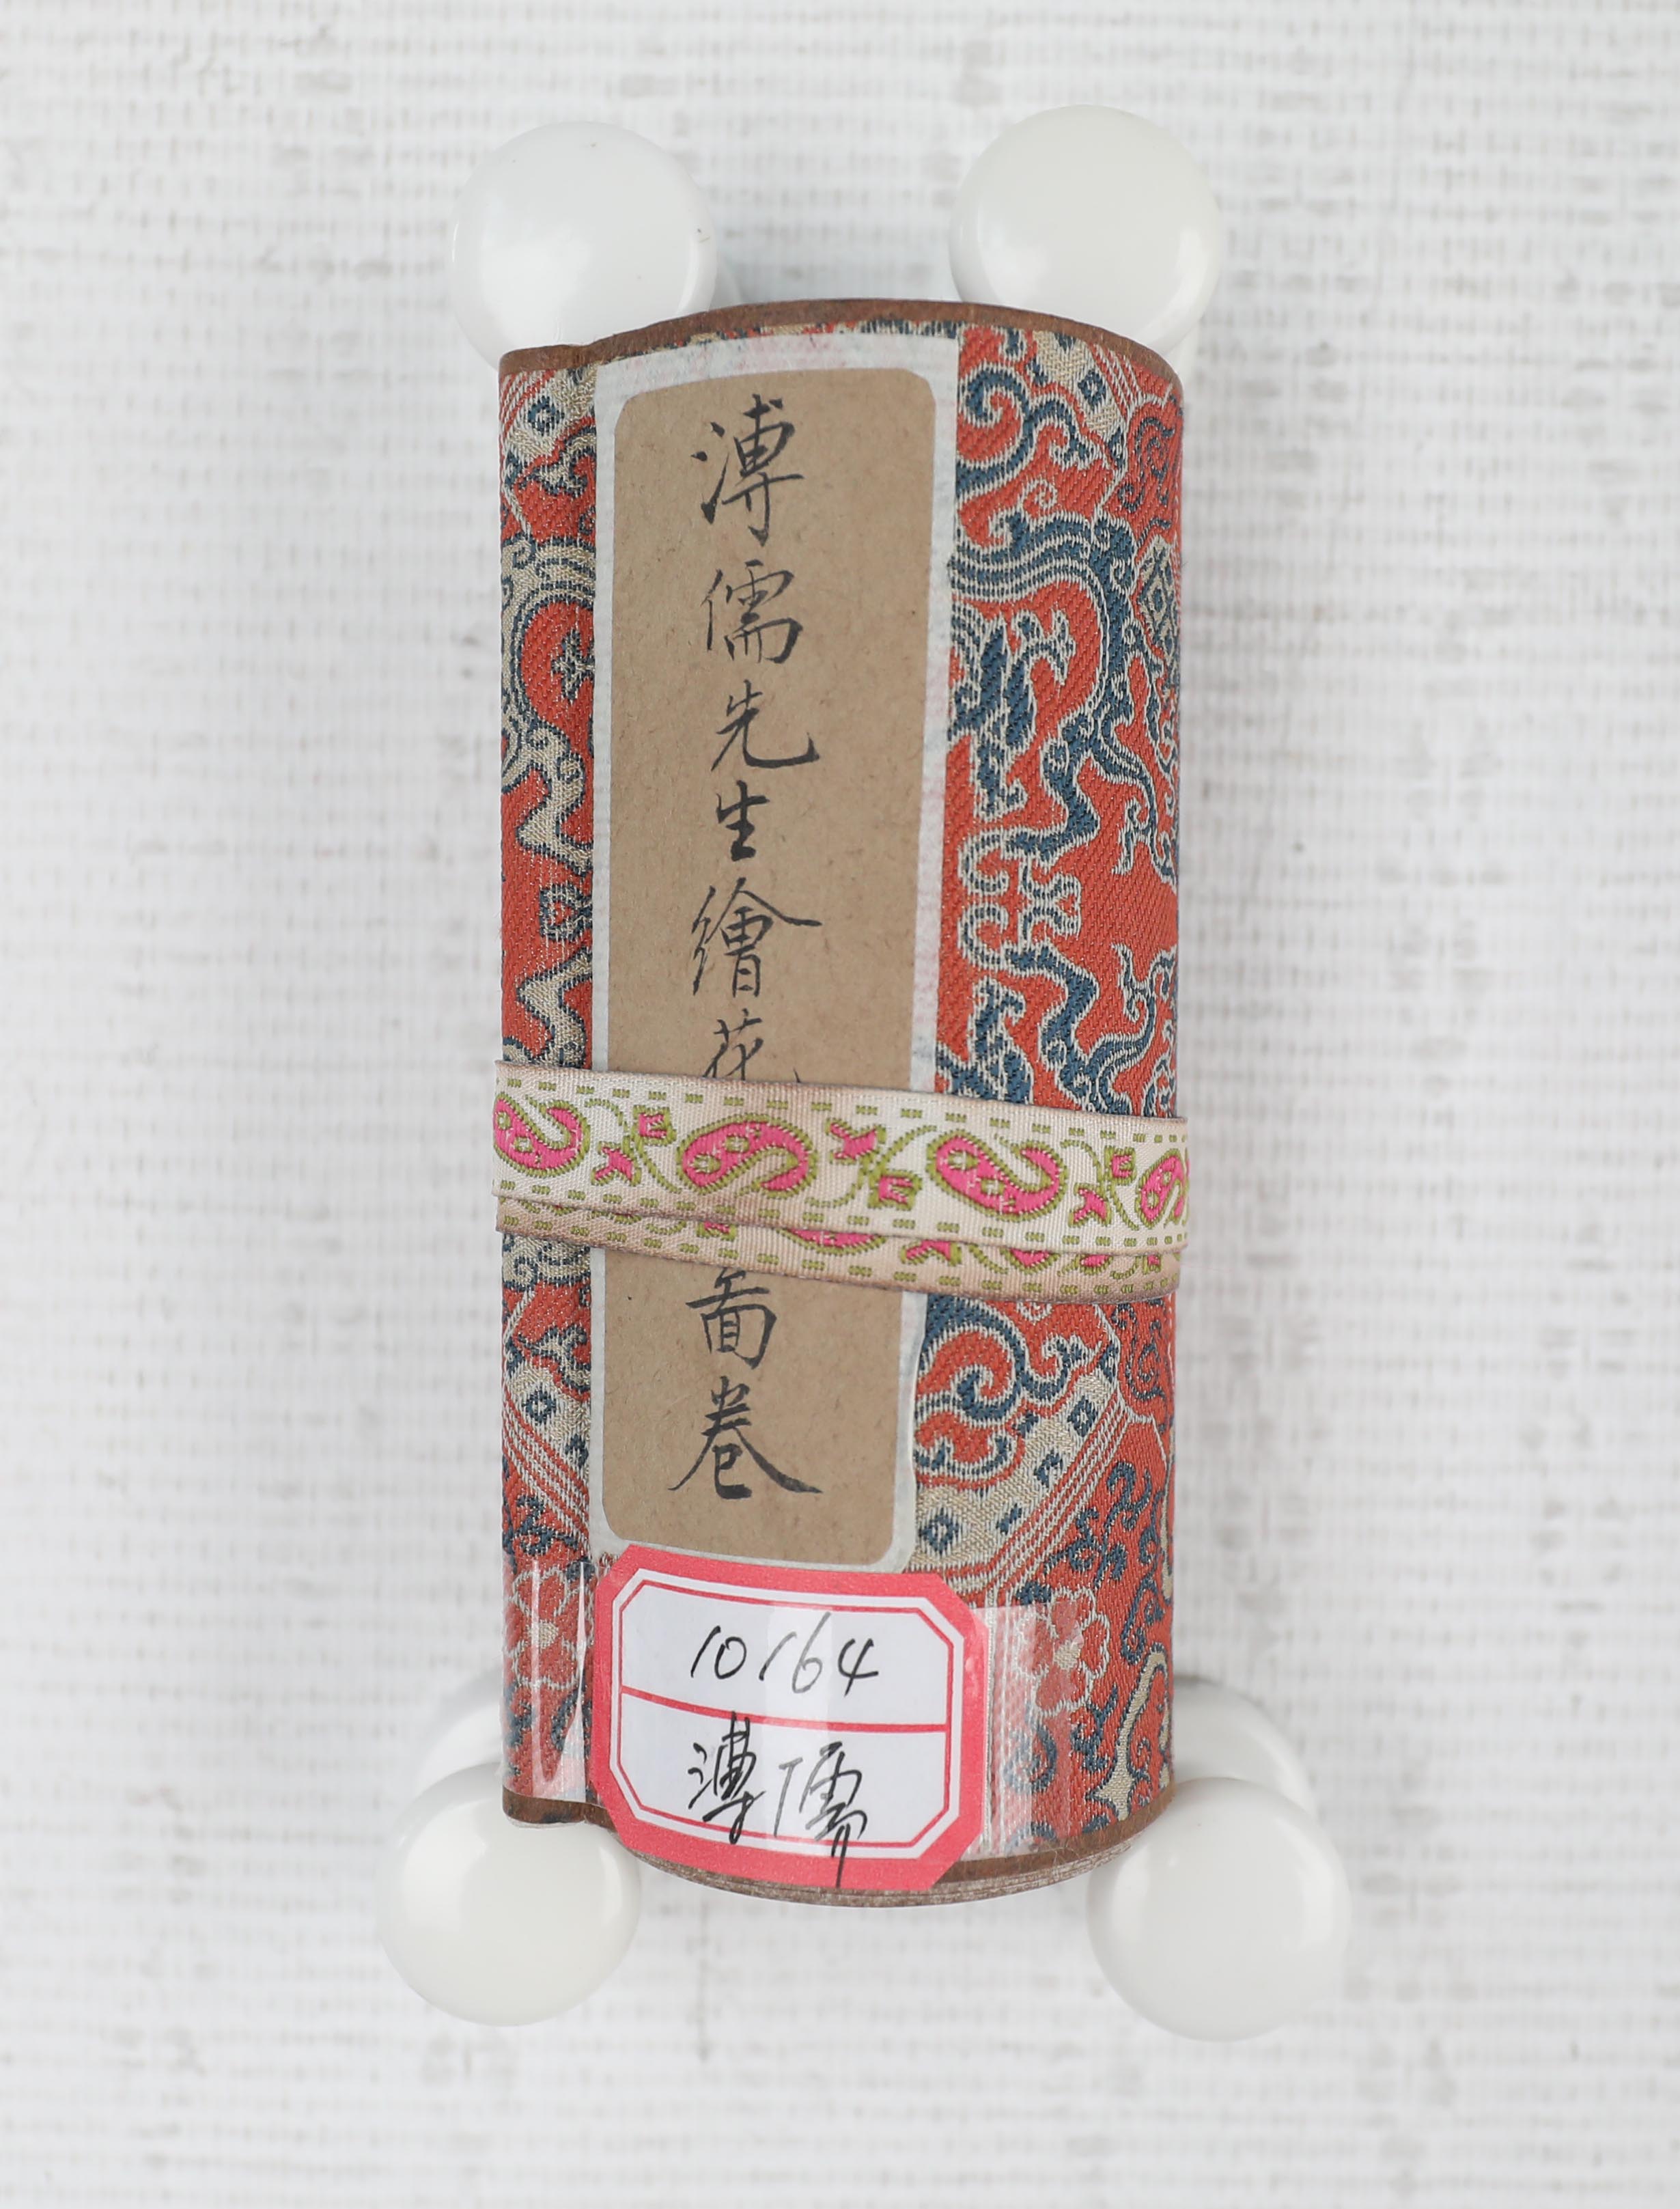 溥儒先生繪花
面卷
10164
溥儒